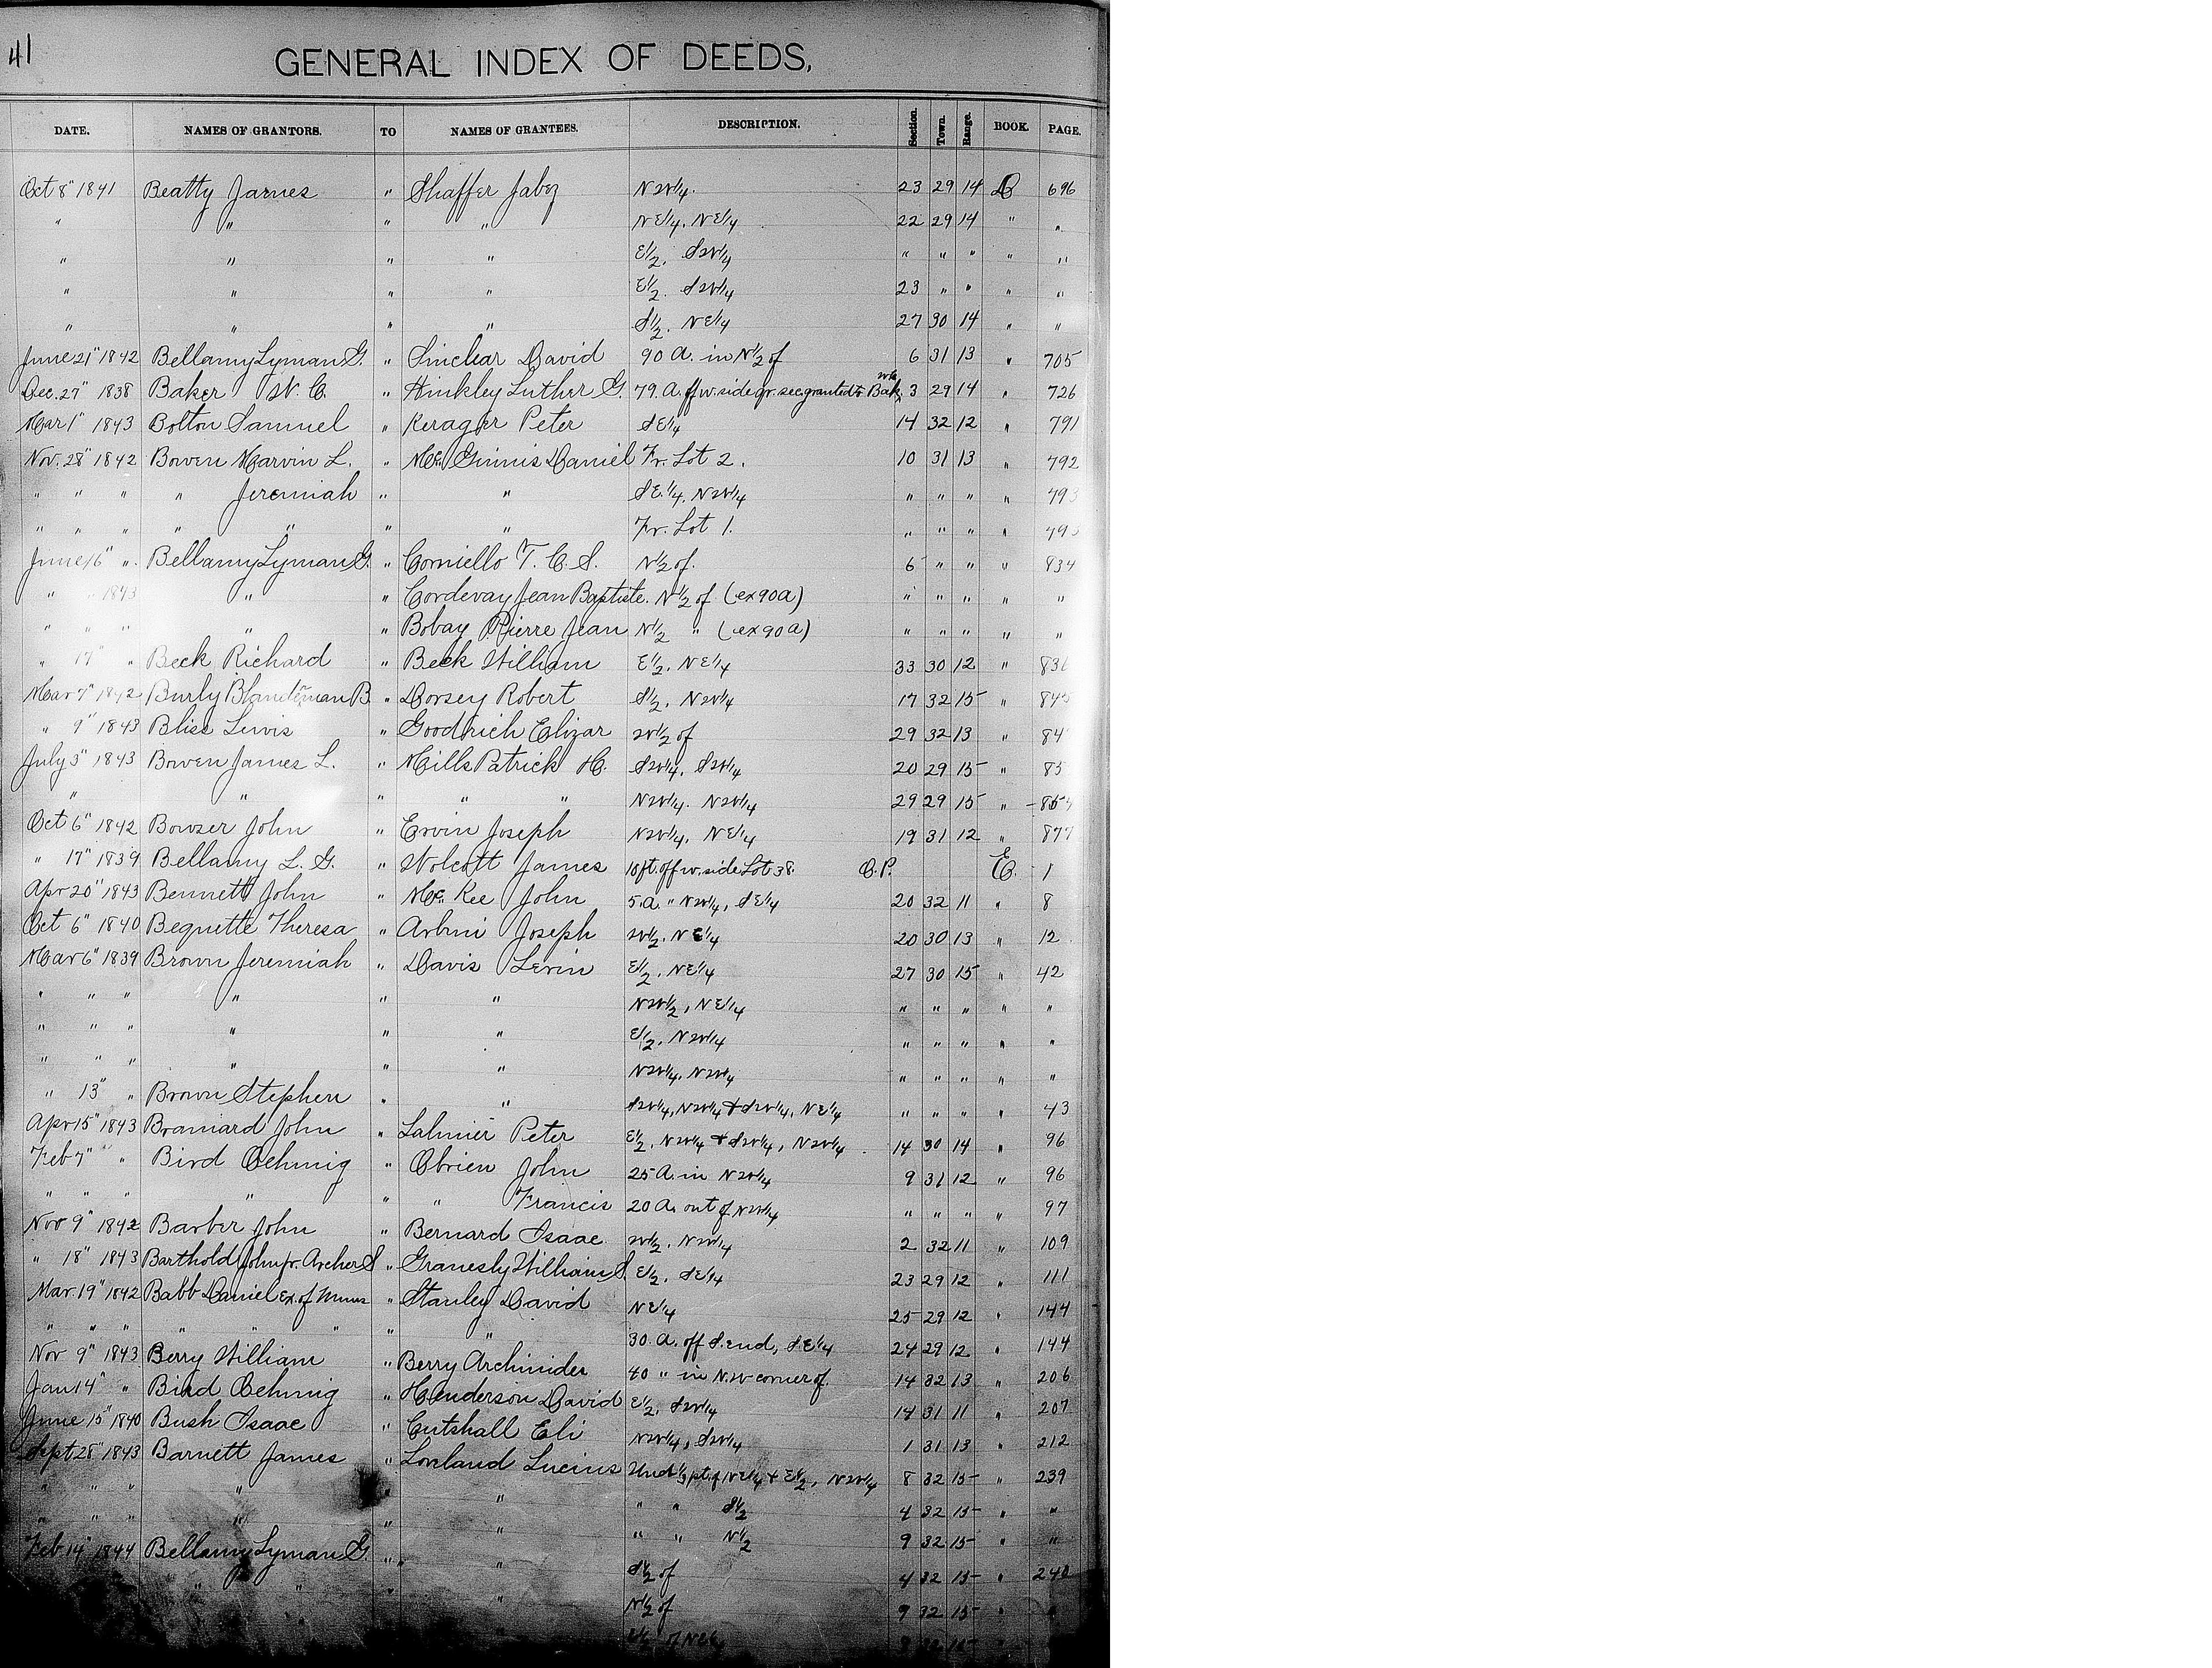 41
GENERAL INDEX OF DEEDS,
DATE. NAMES OF GRANTORS. TO NAMES OF GRANTEES. DESCRIPTION. Section. Town. Range. BOOK. PAGE.
Oct 8" 1841 Beatty James " Shaffer Jabez NW1/4. 23 29 14 D 696
" " " " NE1/4, NE1/4 22 29 14 " "
" " " " E1/2, SW1/4 " " " " "
" " " " E1/2. SW1/4 23 " " " "
" " " " S1/2. NE1/4 27 30 14 " "
June 21" 1842 Bellamy Lyman G. " Sinclear David 90 A. in N1/2 of 6 31 13 " 705
Dec. 27" 1838 Baker W. C. " Hinkley Luther G. 79. A. off w. side qr. sec. granted to Bak. 3 29 14 " 726
Mar 1" 1843 Bolton Samuel " Kerager Peter SE1/4 14 32 12 " 791
Nov. 28" 1842 Bowen Marvin L. " Mc. Ginnis Daniel Fr. Lot 2. 10 31 13 " 792
" " " " Jeremiah " " SE.1/4, NW1/4 " " " " 793
" " " " " " " Fr. Lot 1. " " " "
June 16" " Bellamy Lyman G. " Corniello T. C. S. N1/2 of. 6 " " " 834
" " 1843 " " Cordevay Jean Baptiste. N1/2 of (ex 90a) " " " " "
" " " " " Bobay Pierre Jean N1/2 " (ex 90a) " " " " "
" 17" " Beck Richard " Beck William E1/2, NE1/4 33 30 12 "
Mar 7" 1842 Burly B. " Dorsey Robert S1/2, NW1/4 17 32 15 " 845
" 9" 1843 Bliss Lewis " Goodrich Elizar W1/2 of 29 32 13 "
July 3" 1843 Bowen James L. " Mills Patrick H. SW1/4, SW1/4 20 29 15 "
" " " " " NW1/4. NW1/4 29 29 15 "
Oct 6" 1842 Bowser John " Ervin Joseph NW1/4, NE1/4 19 31 12 " 877
" 17" 1839 Bellamy L. G. " Wolcott James 10 ft. off w. side Lot 38. O.P. E. 1
Apr 20" 1843 Bennett John " Mc. Kee John 5. a. " NW1/4, SE1/4 20 32 11 " 8
Oct 6" 1840 Bequette Theresa " Joseph W1/2. NE1/4 20 30 13 " 12
Mar 6" 1839 Brown Jeremiah " Davis Levin E1/2, NE1/4 27 30 15 " 42
" " " " " " NW1/2, NE1/4 " " " " "
" " " " " " E1/2, NW1/4 " " " " "
" " " " " " NW1/4, NW1/4 " " " " "
" 13" " Brown Stephen " " SW1/4, NW1/4 & SW1/4, NE1/4 " " " " 43
Apr 15" 1843 Braniard John " Lahmier Peter E1/2, NW1/4 & SW1/4, NW1/4 14 30 14 " 96
Feb 7" " Bird Ochmig " Obrien John 25 A. in NW1/4 9 31 12 " 96
" " " " " " Francis 20 A. out of NW1/4 " " " " 97
Nov 9" 1842 Barber John " Bernard Isaac W1/2, NW1/4 2 32 11 " 109
" 18" 1843 Barthold John fr. Archer S " Granesly William S. E1/2, SE1/4 23 29 12 " 111
Mar. 19" 1842 Babb Daniel Ex. of " Stanley David NE1/4 25 29 12 " 144
" " " " " " " " 30. a. off S. end, SE1/4 24 29 12 " 144
Nov 9" 1843 Berry William " Berry Archinider 40 " in N.W corner of. 14 32 13 " 206
Jan 14" " Bird Ochmig " Henderson David E1/2, SW1/4 14 31 11 " 207
June 15" 1840 Bush Isaac " Cutshall Eli NW1/4, SW1/4 1 31 13 " 212
Sept 28" 1843 Barnett James " Loveland Lucius Und 1/3 pt. of NE1/4 & E1/2, NW1/4 8 32 15 " 239
" " " " " " " " S1/2 4 32 15 " "
" " " " " " " " N1/2 9 32 15 " "
Feb 14" 1844 Bellamy Lyman G. " " S1/2 of 4 32 15 " 240
" " " " N1/2 of 9 32 15 " "